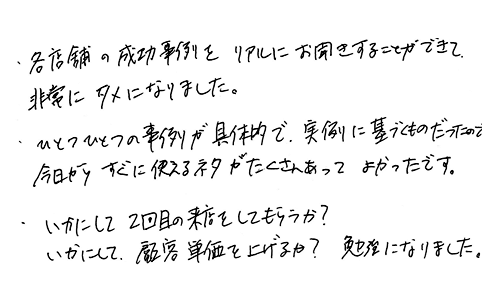 ・各店舗の成功事例を リアルにお聞きすることができて、
非常に タメになりました。
・ひとつひとつの事例が具体的で、実例に基づくものだったので
今日から すぐに使えるネタがたくさんあって よかったです。
・いかにして 2回目の来店をしてもらうか?
いかにして、顧客単価を上げるか? 勉強になりました。